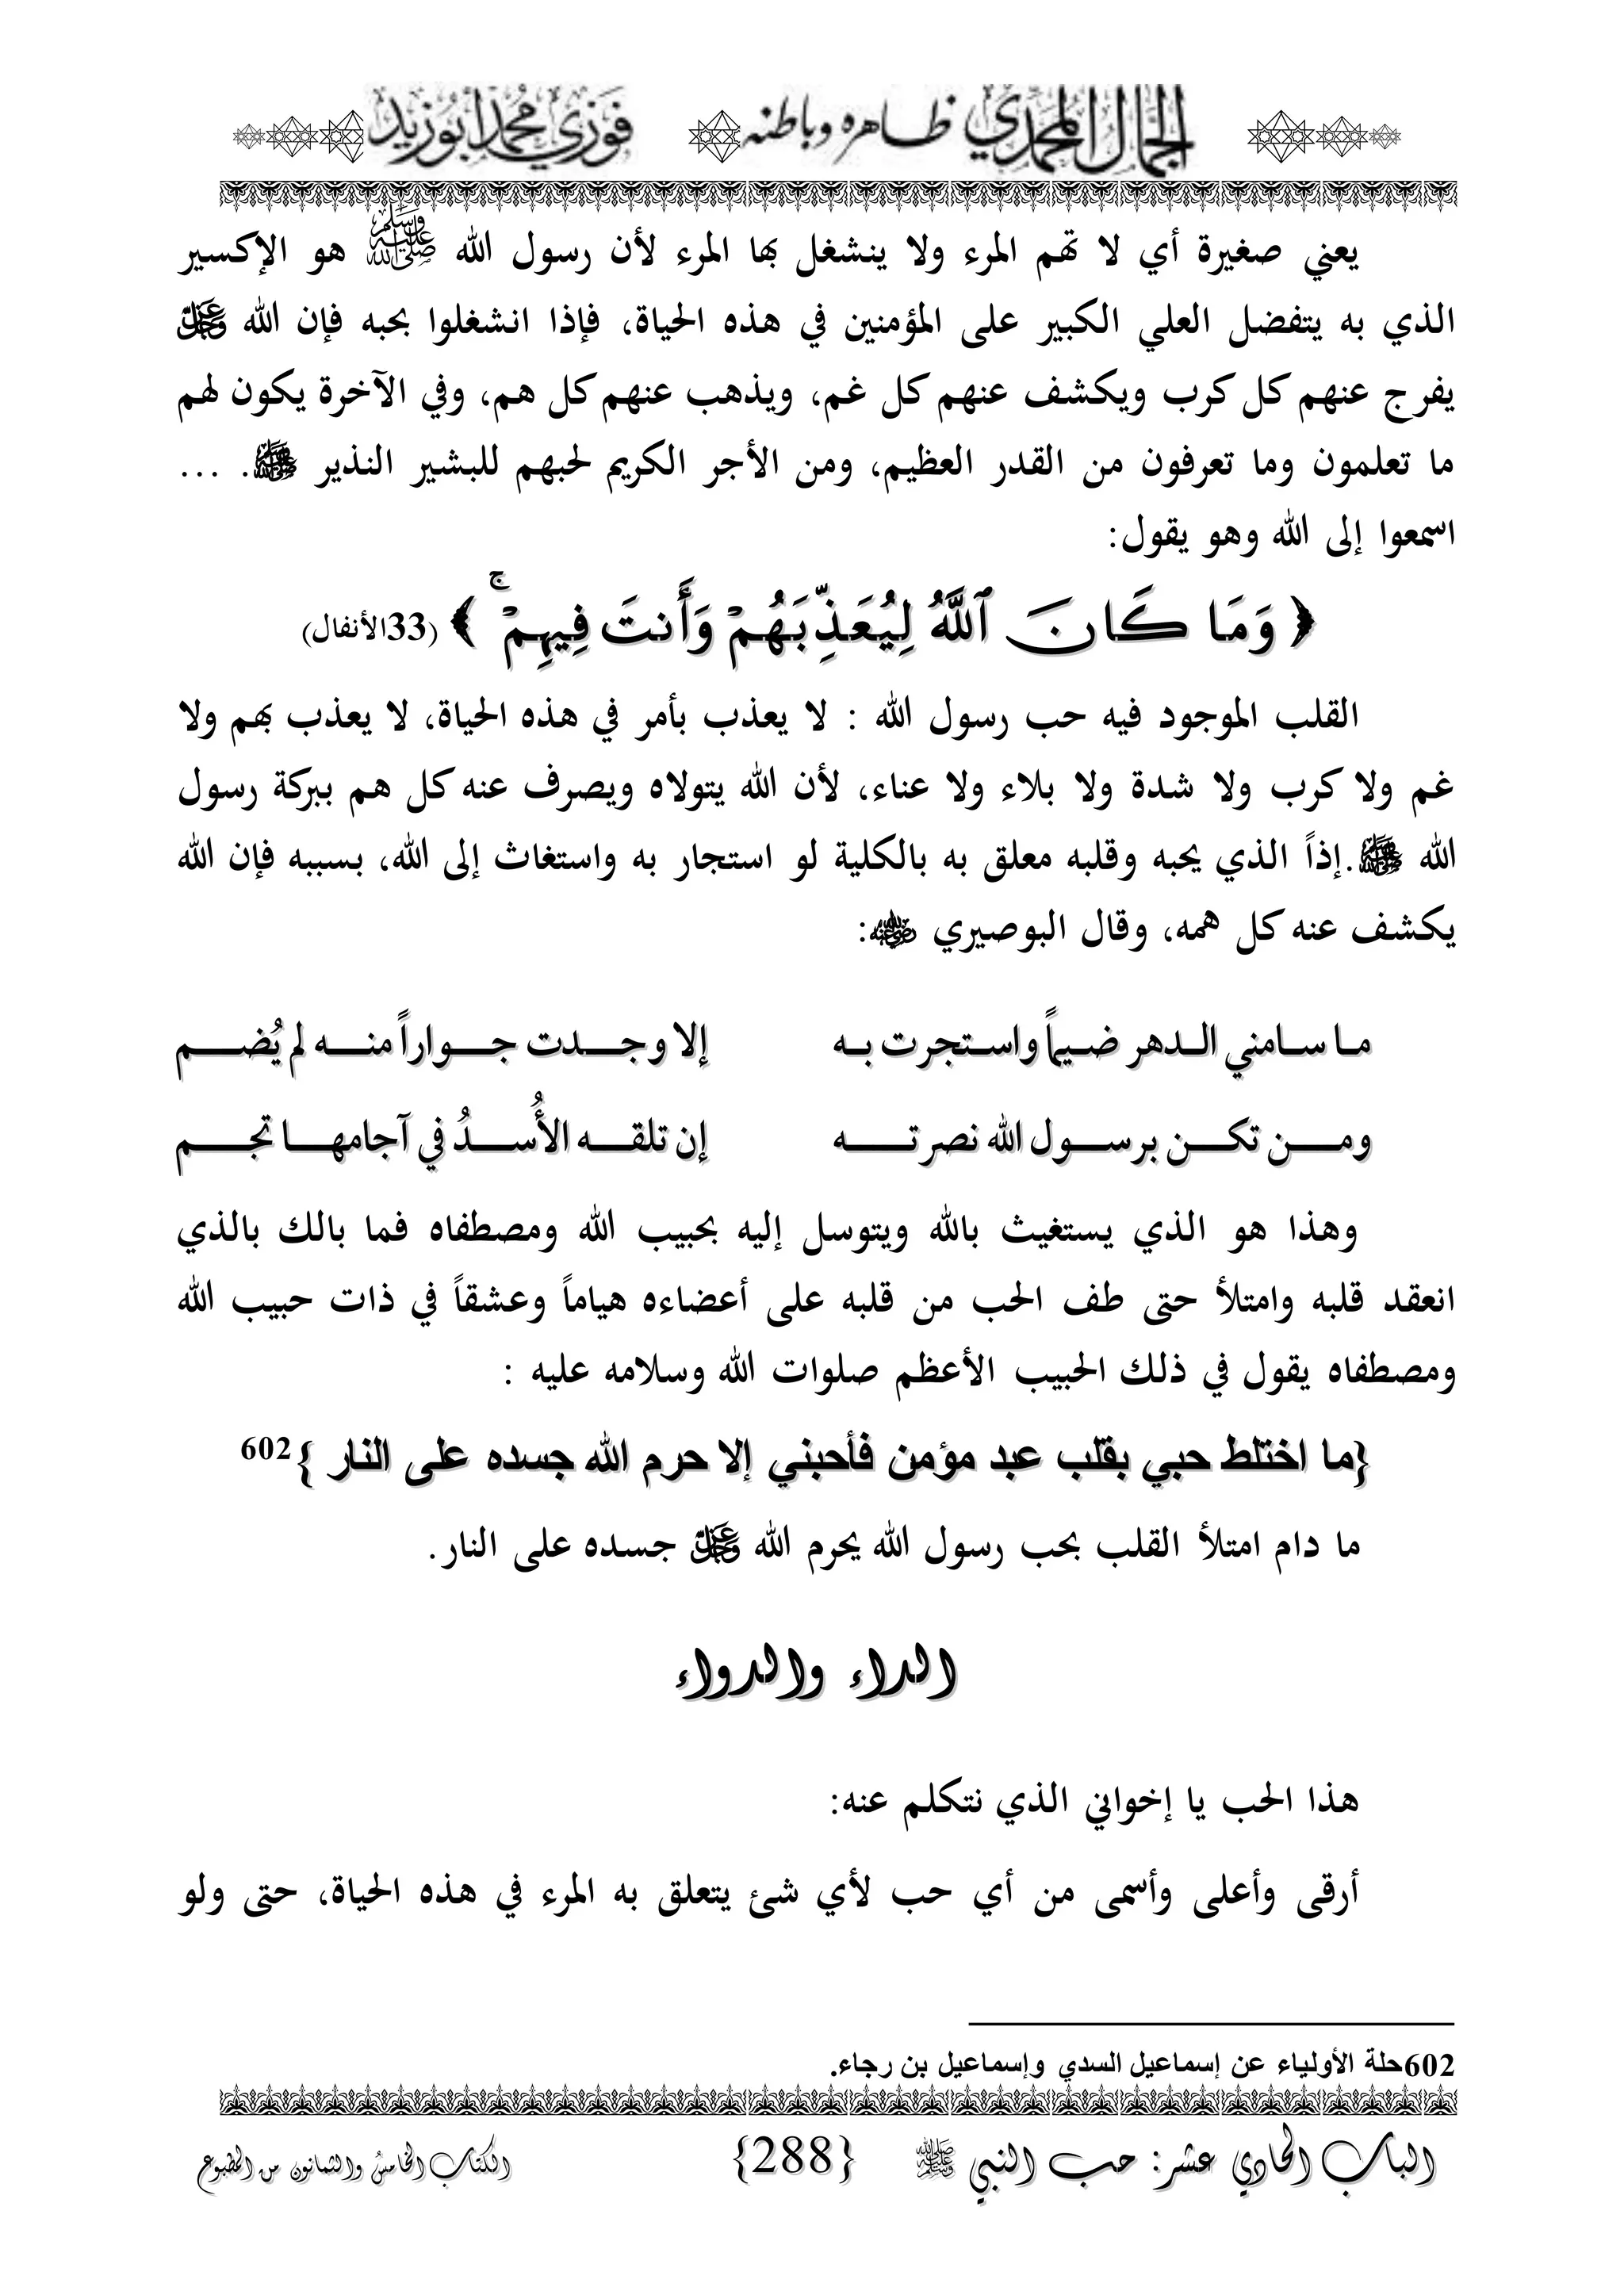 الجمال المحمدي ظاهره وباطنه فوزي محمد أبوزيد
يعني صغيرة أي لا تهم المرء ولا ينشغل بها المرء لأن رسول الله ﷺ هو الإكسير
الذي به يتفضل العلي الكبير على المؤمنين في هذه الحياة، فإذا انشغلوا بحبه فإن الله عز وجل
يفرج عنهم كل كرب ويكشف عنهم كل غم، ويذهب عنهم كل هم، وفي الآخرة يكون لهم
ما تعلمون وما تعرفون من القدر العظيم، ومن الأجر الكريم لحبهم للبشير النذير ﷺ. ...
اسمعوا إلى الله وهو يقول:
﴿ وَمَا كَانَ ٱللَّهُ لِيُعَذِّبَهُمْ وَأَنتَ فِيهِمْ ۚ ﴾ (33الأنفال)
القلب الموجود فيه حب رسول الله : لا يعذب بأمر في هذه الحياة، لا يعذب بهم ولا
غم ولا كرب ولا شدة ولا بلاء ولا عناء، لأن الله يتولاه ويصرف عنه كل هم ببركة رسول
الله ﷺ.إذاً الذي يحبه وقلبه معلق به بالكلية لو استجار به واستغاث إلى الله، بسببه فإن الله
يكشف عنه كل همه، وقال البوصيري رضي الله عنه:
مـا سـامني الـدهر ضـيماً واسـتجرت بـه إلا وجـدت جـواراً منـه لم يُضـم
ومـن تكـن برسـول الله نصرتـه إن تلقـه الأُسـدُ في آجامهـا تجـم
وهذا هو الذي يستغيث بالله ويتوسل إليه بحبيب الله ومصطفاه فما بالك بالذي
انعقد قلبه وامتلأ حتى طف الحب من قلبه على أعضاءه هياماً وعشقاً في ذات حبيب الله
ومصطفاه يقول في ذلك الحبيب الأعظم صلوات الله وسلامه عليه :
{ما اختلط حبي بقلب عبد مؤمن فأحبني إلا حرم الله جسده على النار }602
ما دام امتلأ القلب بحب رسول الله يحرم الله عز وجل جسده على النار.
الداء والدواء
هذا الحب يا إخواني الذي نتكلم عنه:
أرقى وأعلى وأسمى من أي حب لأي شئ يتعلق به المرء في هذه الحياة، حتى ولو
602حلة الأولياء عن إسماعيل السدي وإسماعيل بن رجاء.
الباب الحادي عشر: حب النبي ﷺ {288} الكتاب الخامس والثمانون من المطبوع